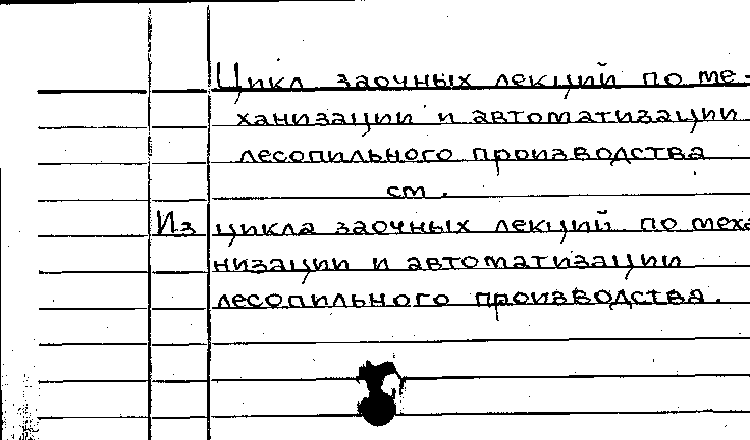 Цикл заочных лекций по ме-
ханизации и автоматизации
лесопильного производства
см.
Из цикла заочных лекций по меха
низации и автоматизации
лесопильного производства.